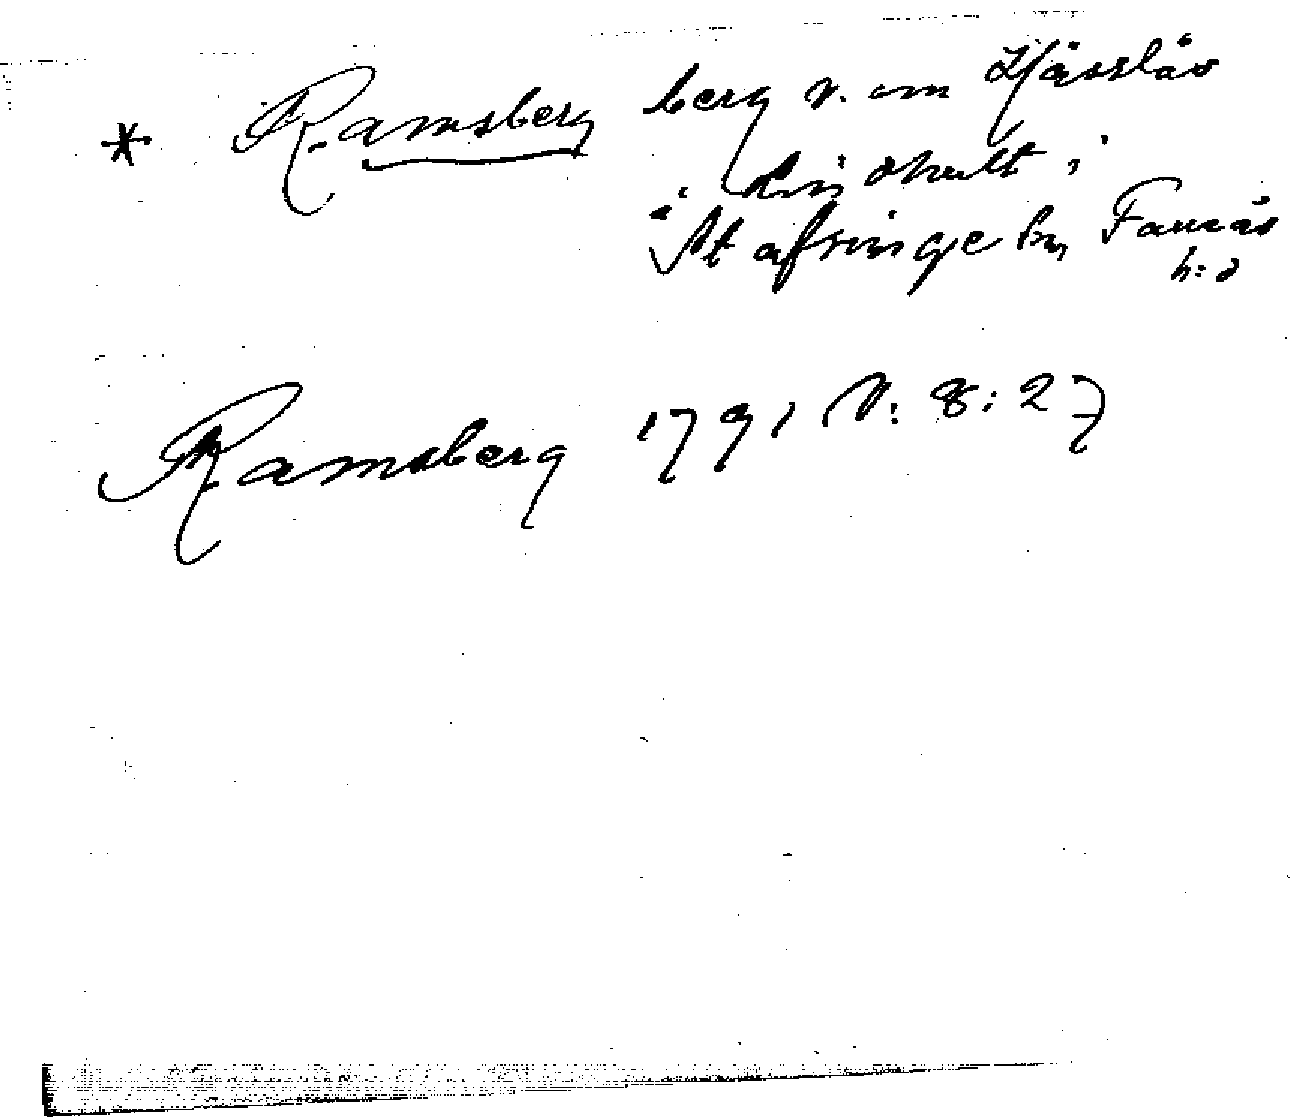 * Ramsberg berg v. om Hässlås
i Lindhult i
Stafsinge sn Faurås
h:d
Ramsberg 1791 V: 8: 27